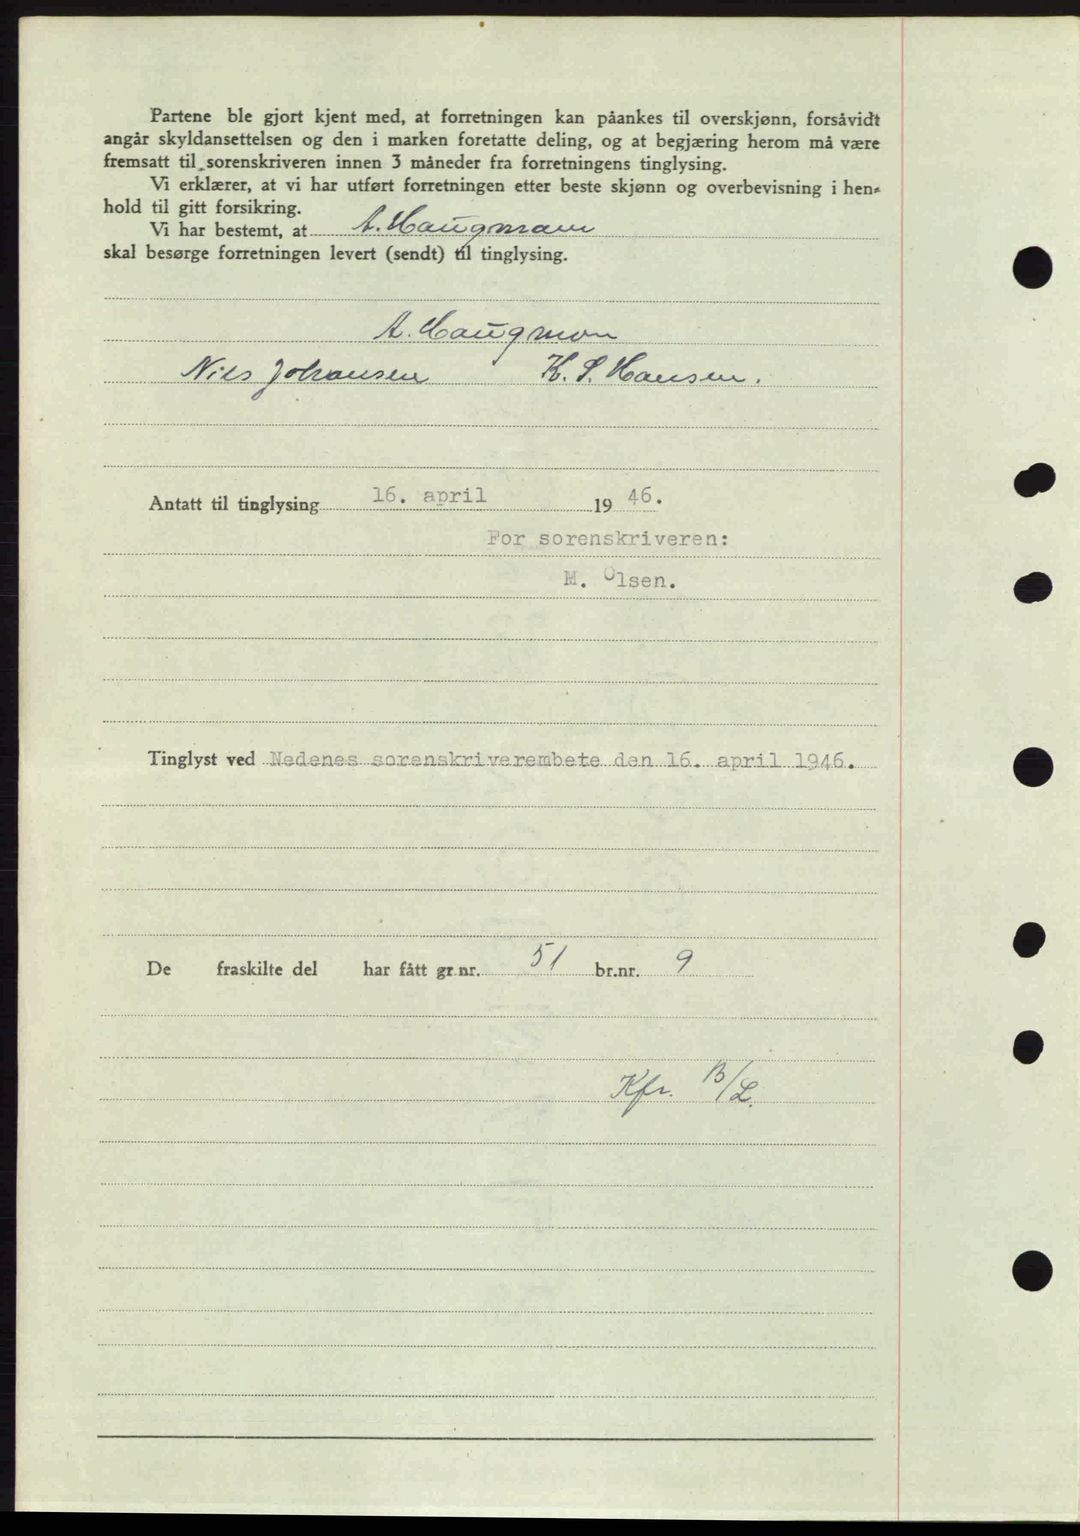 Partene ble gjort kjent med, at forretningen kan påankes til overskjønn, forsåvidt
angår skyldansettelsen og den i marken foretatte deling, og at begjæring herom må være
fremsatt til sorenskriveren innen 3 måneder fra forretningens tinglysing.
Vi erklærer, at vi har utført forretningen etter beste skjønn og overbevisning i hen=
hold til gitt forsikring.
Vi har bestemt, at A. Haugmoen
skal besørge forretningen levert (sendt) til tinglysing.
A. Haugmon
Niels Johansen K. S. Hansen.
Antatt til tinglysing 16. april 19 46.
For sorenskriveren:
M. Olsen.
Tinglyst ved Nedenes sorenskriverembete den 16. april 1946.
De fraskilte del har fått gr.nr. 51 br.nr. 9
Kfr. B/L.